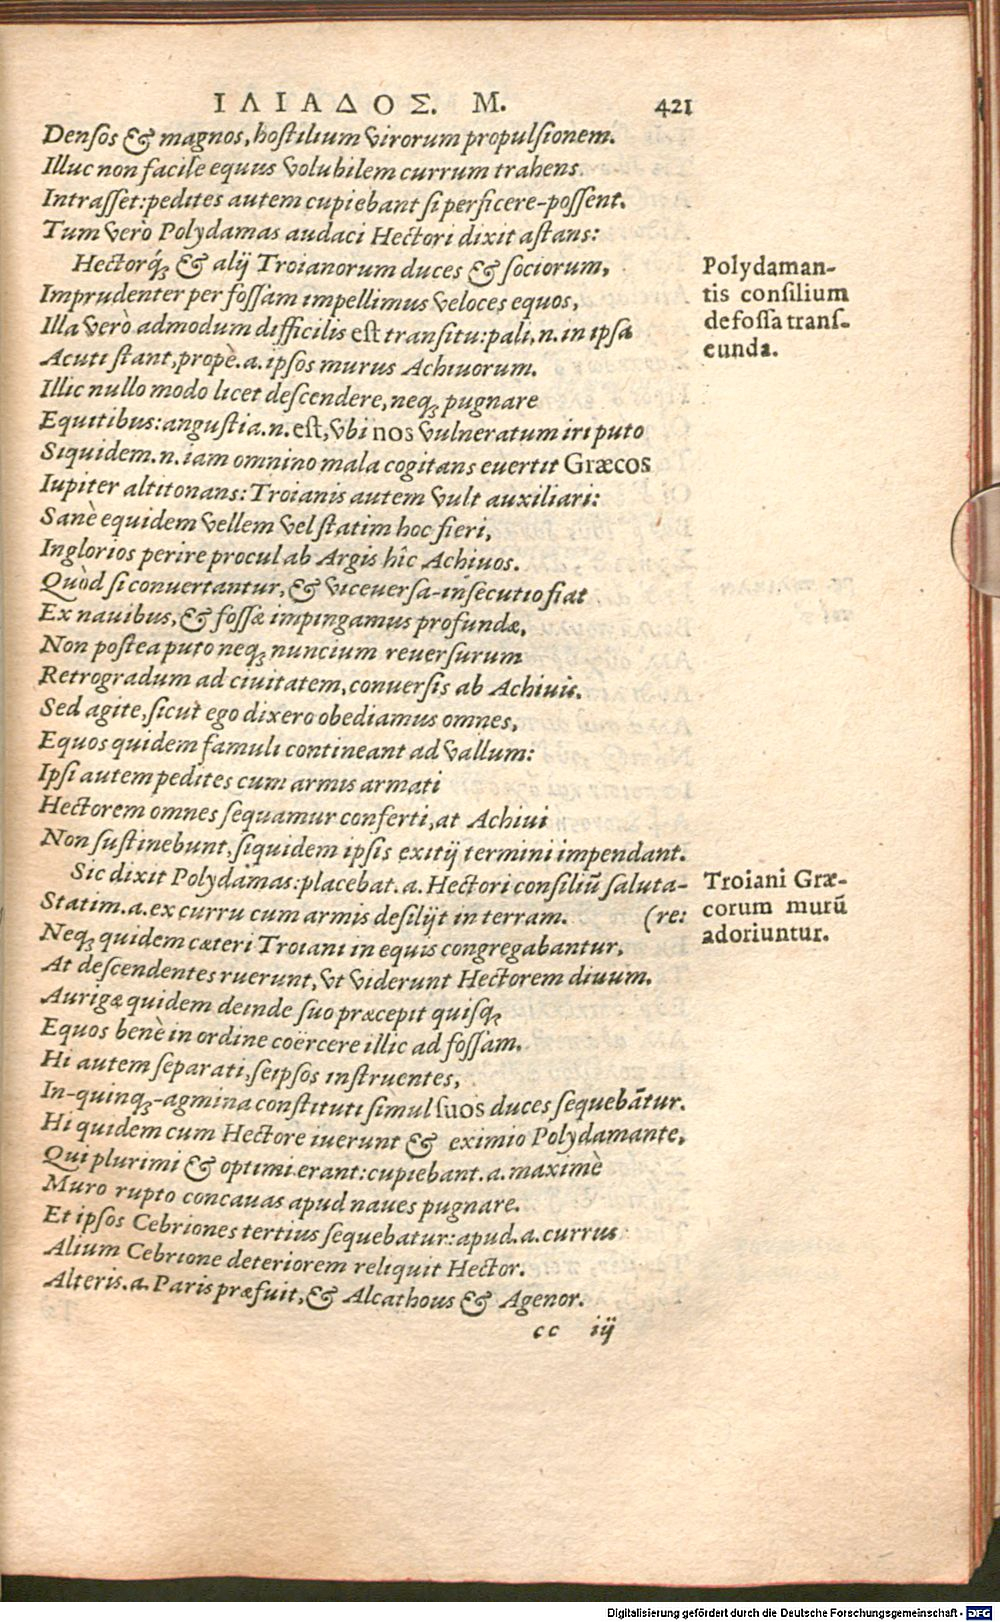 ΙΛΙΑΔΟΣ. Μ. 421
Densos & magnos, hostilium virorum propulsionem.
Illuc non facile equus volubilem currum trahens
Intrasset: pedites autem cupiebant si perficere-possent.
Tum verò Polydamas audaci Hectori dixit astans:
Hectorq́; & alij Troianorum duces & sociorum,
Imprudenter per fossam impellimus veloces equos,
Illa verò admodum difficilis est transitu: pali, n. in ipsa
Acuti stant, propè .a. ipsos murus Achiuorum.
Illic nullo modo licet descendere, neq; pugnare
Equitibus: angustia .n. est, vbi nos vulneratum iri puto
Siquidem .n. iam omnino mala cogitans euertit Græcos
Iupiter altitonans: Troianis autem vult auxiliari:
Sanè equidem vellem vel statim hoc fieri,
Inglorios perire procul ab Argis hîc Achiuos.
Quòd si conuertantur, & viceuersa-insecutio fiat
Ex nauibus, & fossæ impingamus profundæ,
Non postea puto neq; nuncium reuersurum
Retrogradum ad ciuitatem, conuersis ab Achiuis.
Sed agite, sicut ego dixero obediamus omnes,
Equos quidem famuli contineant ad vallum:
Ipsi autem pedites cum armis armati
Hectorem omnes sequamur conferti, at Achiui
Non sustinebunt, siquidem ipsis exitij termini impendant.
Sic dixit Polydamas: placebat .a. Hectori consiliū saluta-
Statim .a. ex curru cum armis desilijt in terram. (re:
Neq; quidem cæteri Troiani in equis congregabantur,
At descendentes ruerunt, vt viderunt Hectorem diuum.
Aurigæ quidem deinde suo præcepit quisq;
Equos benè in ordine coërcere illic ad fossam.
Hi autem separati, seipsos instruentes,
In-quinq;-agmina constituti simul suos duces sequebātur.
Hi quidem cum Hectore iuerunt & eximio Polydamante,
Qui plurimi & optimi erant: cupiebant .a. maximè
Muro rupto concauas apud naues pugnare.
Et ipsos Cebriones tertius sequebatur: apud .a. currus
Alium Cebrione deteriorem reliquit Hector.
Alteris .a. Paris præfuit, & Alcathous & Agenor.
cc iij
Polydaman-
tis consilium
de fossa trans-
eunda.
Troiani Græ-
corum murū
adoriuntur.
Digitalisierung gefördert durch die Deutsche Forschungsgemeinschaft - DFG